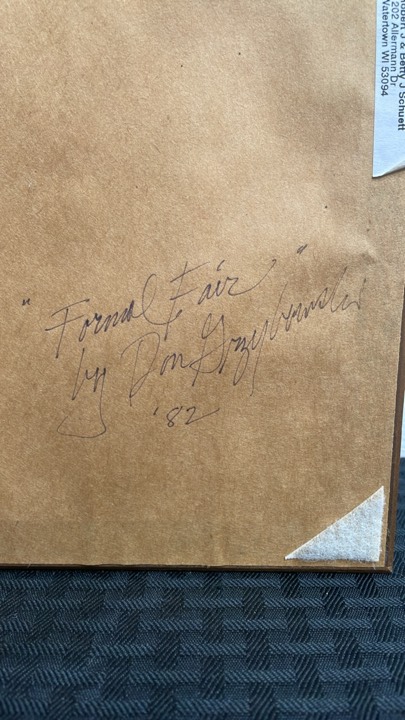 Robert J & Betty J Schuett
202 Allermann Dr
Watertown WI 53094
"Formal Fair"
by Don Grzybowski
'82